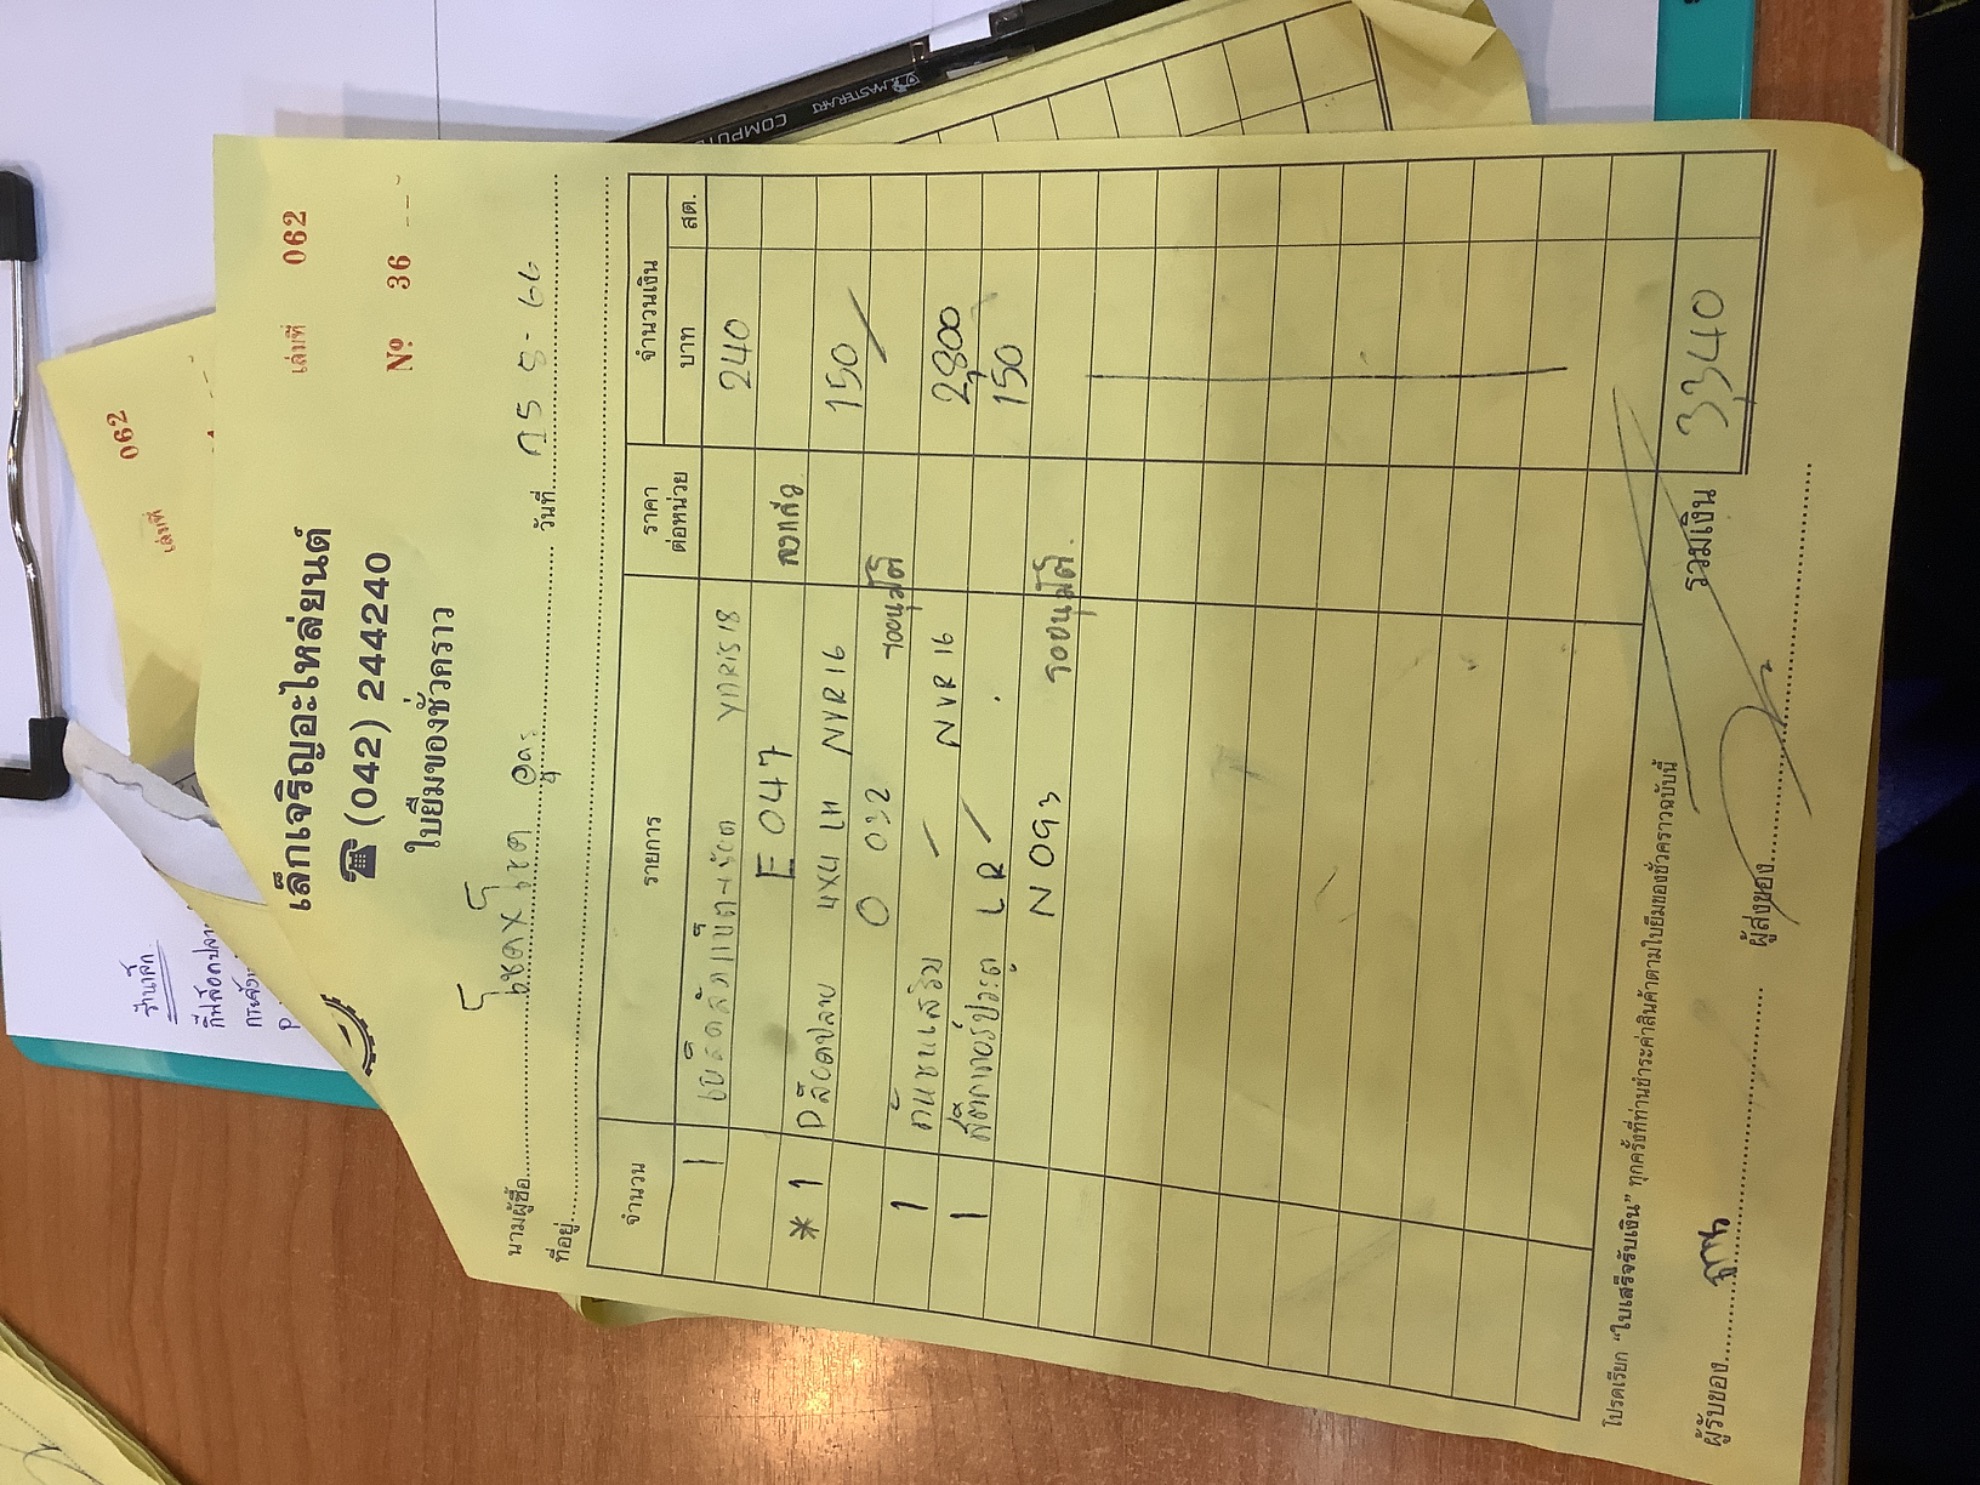 เล็กเจริญอะไหล่ยนต์
เล่มที่ 062
☎ (042) 244240
Nº 36
ใบยืมของชั่วคราว
นามผู้ซื้อ โชคxโชค อุดร วันที่ 25-8-66
ที่อยู่
จำนวน รายการ ราคาต่อหน่วย จำนวนเงิน
บาท สต.
1 YARIS 18 240
E 047 ลงแล้ว
* 1 Pล็อตปลาย 4X4 LH NVR16 150
0 032 รออนุมัติ
1 กันชนเสริม NVR 16 2,800
1 สติกเกอร์ประตู LR 150
N 093 รออนุมัติ.
รวมเงิน 3,340
โปรดเรียก "ใบเสร็จรับเงิน" ทุกครั้งที่ท่านชำระค่าสินค้าตามใบยืมของชั่วคราวฉบับนี้
ผู้รับของ
ผู้ส่งของ
เล่มที่ 062
ร้านเล็ก
MASTERART
COMPUTE